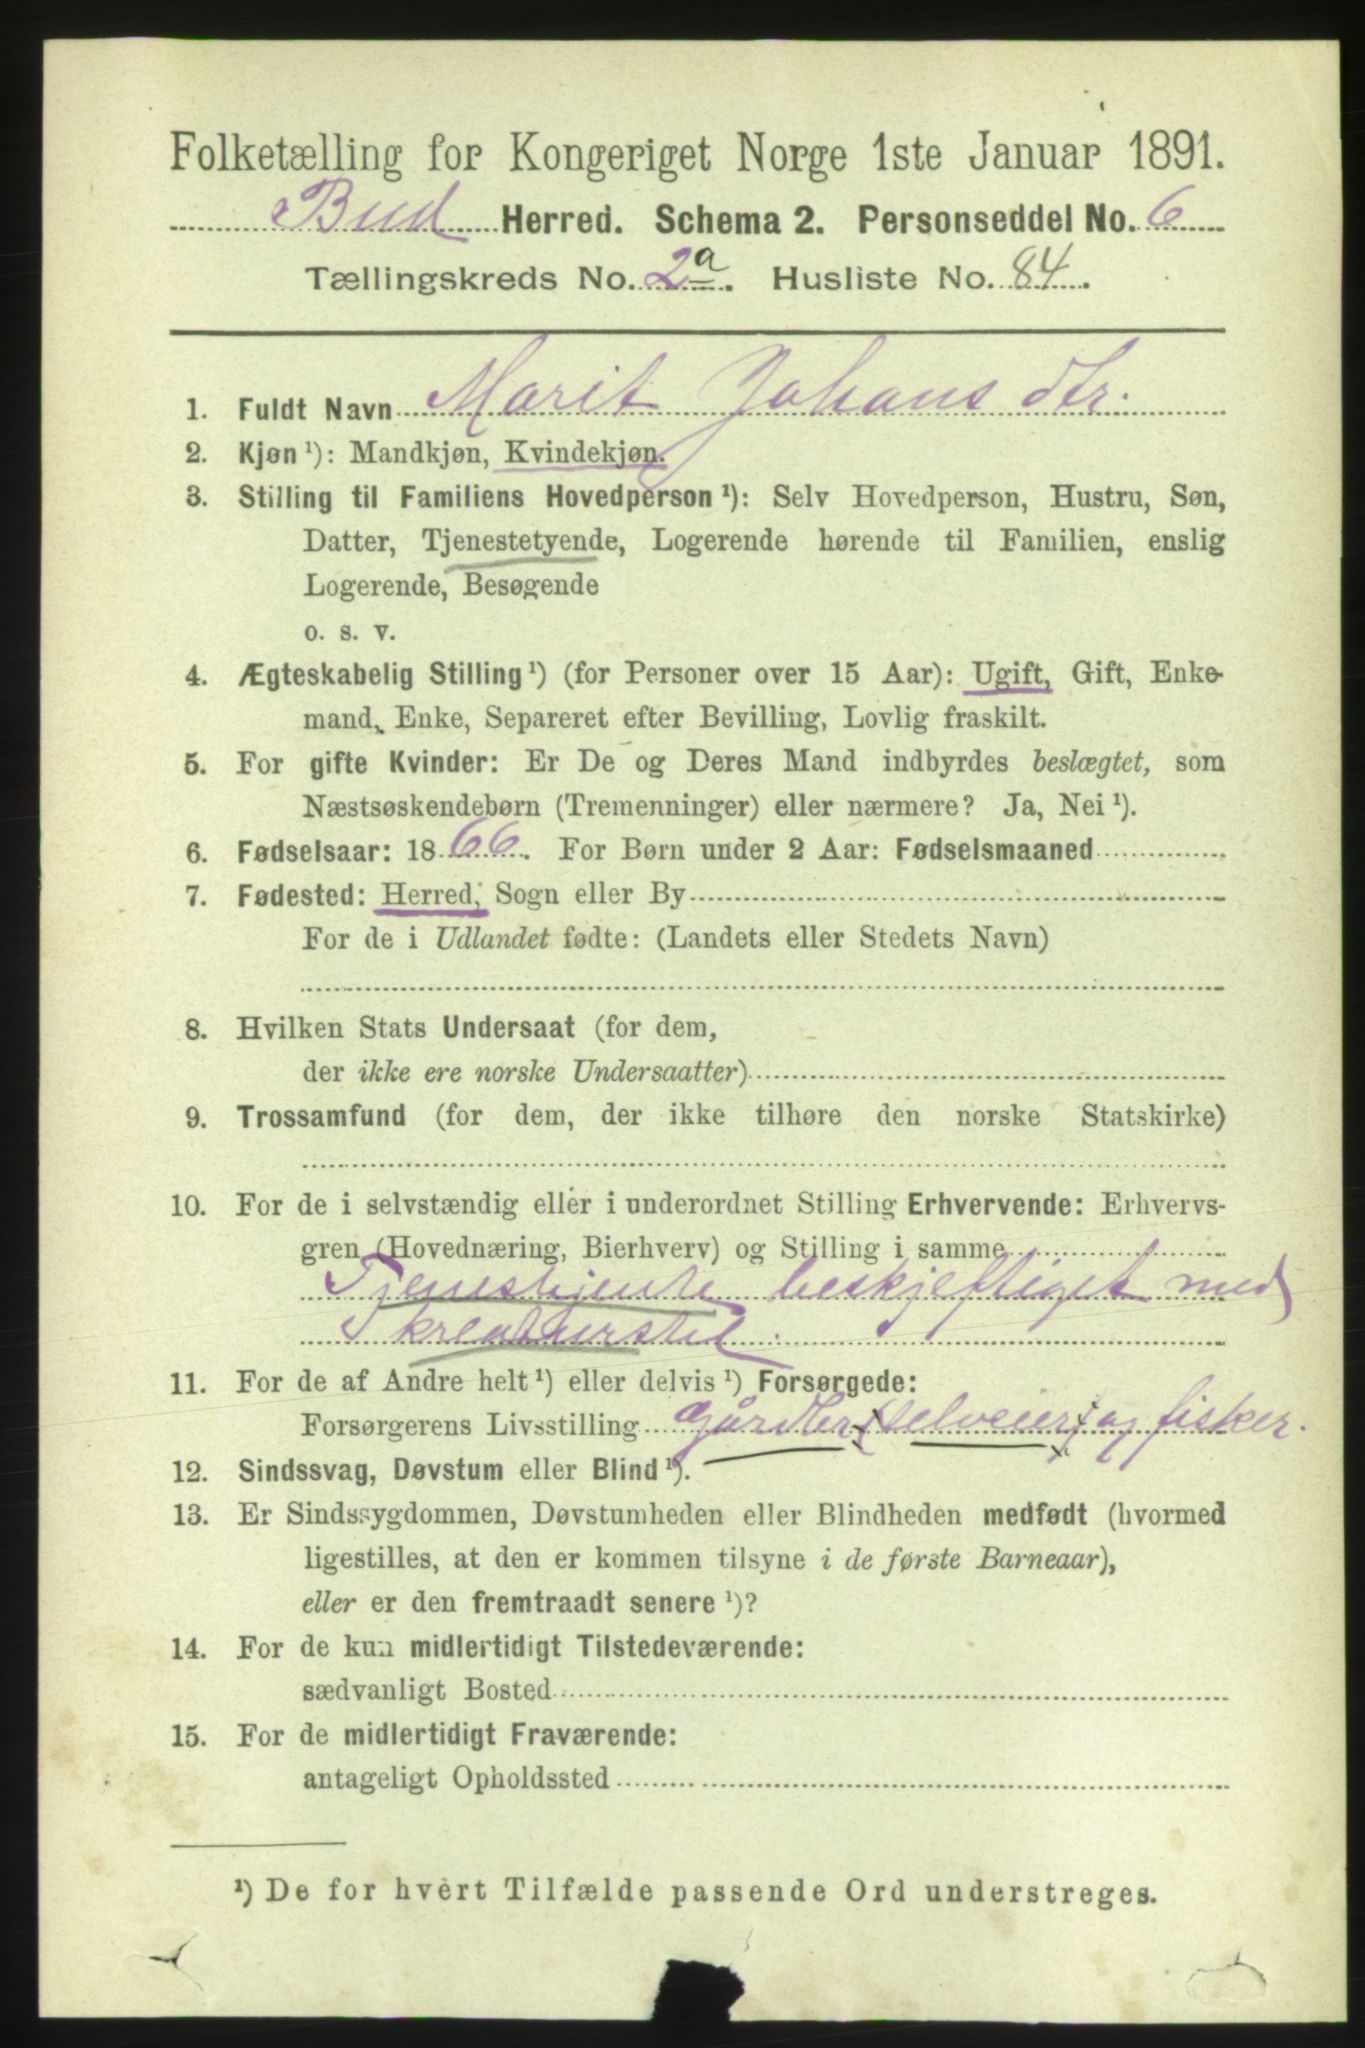 Folketælling for Kongeriget Norge 1ste Januar 1891.
Bud Herred. Schema 2. Personseddel No. 6
Tællingskreds No. 2a. Husliste No. 84.
1. Fuldt Navn Marit Johansdtr.
2. Kjøn¹): Mandkjøn, Kvindekjøn.
3. Stilling til Familiens Hovedperson¹): Selv Hovedperson, Hustru, Søn,
Datter, Tjenestetyende, Logerende hørende til Familien, enslig
Logerende, Besøgende
o. s. v.
4. Ægteskabelig Stilling¹) (for Personer over 15 Aar): Ugift, Gift, Enke-
mand, Enke, Separeret efter Bevilling, Lovlig fraskilt.
5. For gifte Kvinder: Er De og Deres Mand indbyrdes beslægtet, som
Næstsøskendebørn (Tremenninger) eller nærmere? Ja, Nei¹).
6. Fødselsaar: 1866. For Børn under 2 Aar: Fødselsmaaned
7. Fødested: Herred, Sogn eller By
For de i Udlandet fødte: (Landets eller Stedets Navn)
8. Hvilken Stats Undersaat (for dem,
der ikke ere norske Undersaatter)
9. Trossamfund (for dem, der ikke tilhøre den norske Statskirke)
10. For de i selvstændig eller i underordnet Stilling Erhvervende: Erhvervs-
gren (Hovednæring, Bierhverv) og Stilling i samme
Tjenestjente beskjeftiget med
kreaturstel.
11. For de af Andre helt¹) eller delvis¹) Forsørgede:
Forsørgerens Livsstilling gårdbr (selveier) og fisker.
12. Sindssvag, Døvstum eller Blind¹).
13. Er Sindssygdommen, Døvstumheden eller Blindheden medfødt (hvormed
ligestilles, at den er kommen tilsyne i de første Barneaar),
eller er den fremtraadt senere¹)?
14. For de kun midlertidigt Tilstedeværende:
sædvanligt Bosted
15. For de midlertidigt Fraværende:
antageligt Opholdssted
¹) De for hvert Tilfælde passende Ord understreges.